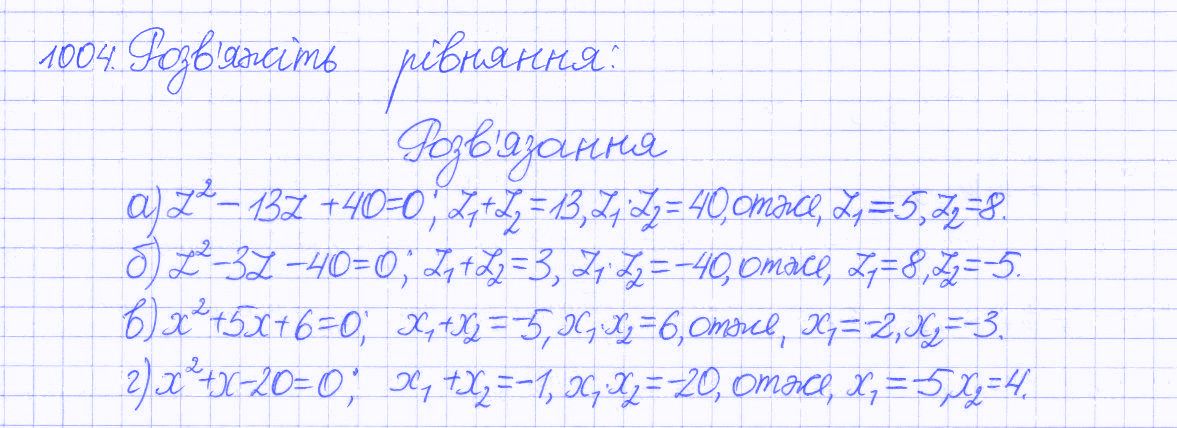 1004. Розв'яжіть рівняння:
Розв'язання
а) z² - 13z + 40 = 0; z₁ + z₂ = 13, z₁ · z₂ = 40, отже, z₁ = 5, z₂ = 8.
б) z² - 3z - 40 = 0; z₁ + z₂ = 3, z₁ · z₂ = -40, отже, z₁ = 8, z₂ = -5.
в) x² + 5x + 6 = 0; x₁ + x₂ = -5, x₁ · x₂ = 6, отже, x₁ = -2, x₂ = -3.
г) x² + x - 20 = 0; x₁ + x₂ = -1, x₁ · x₂ = -20, отже, x₁ = -5, x₂ = 4.